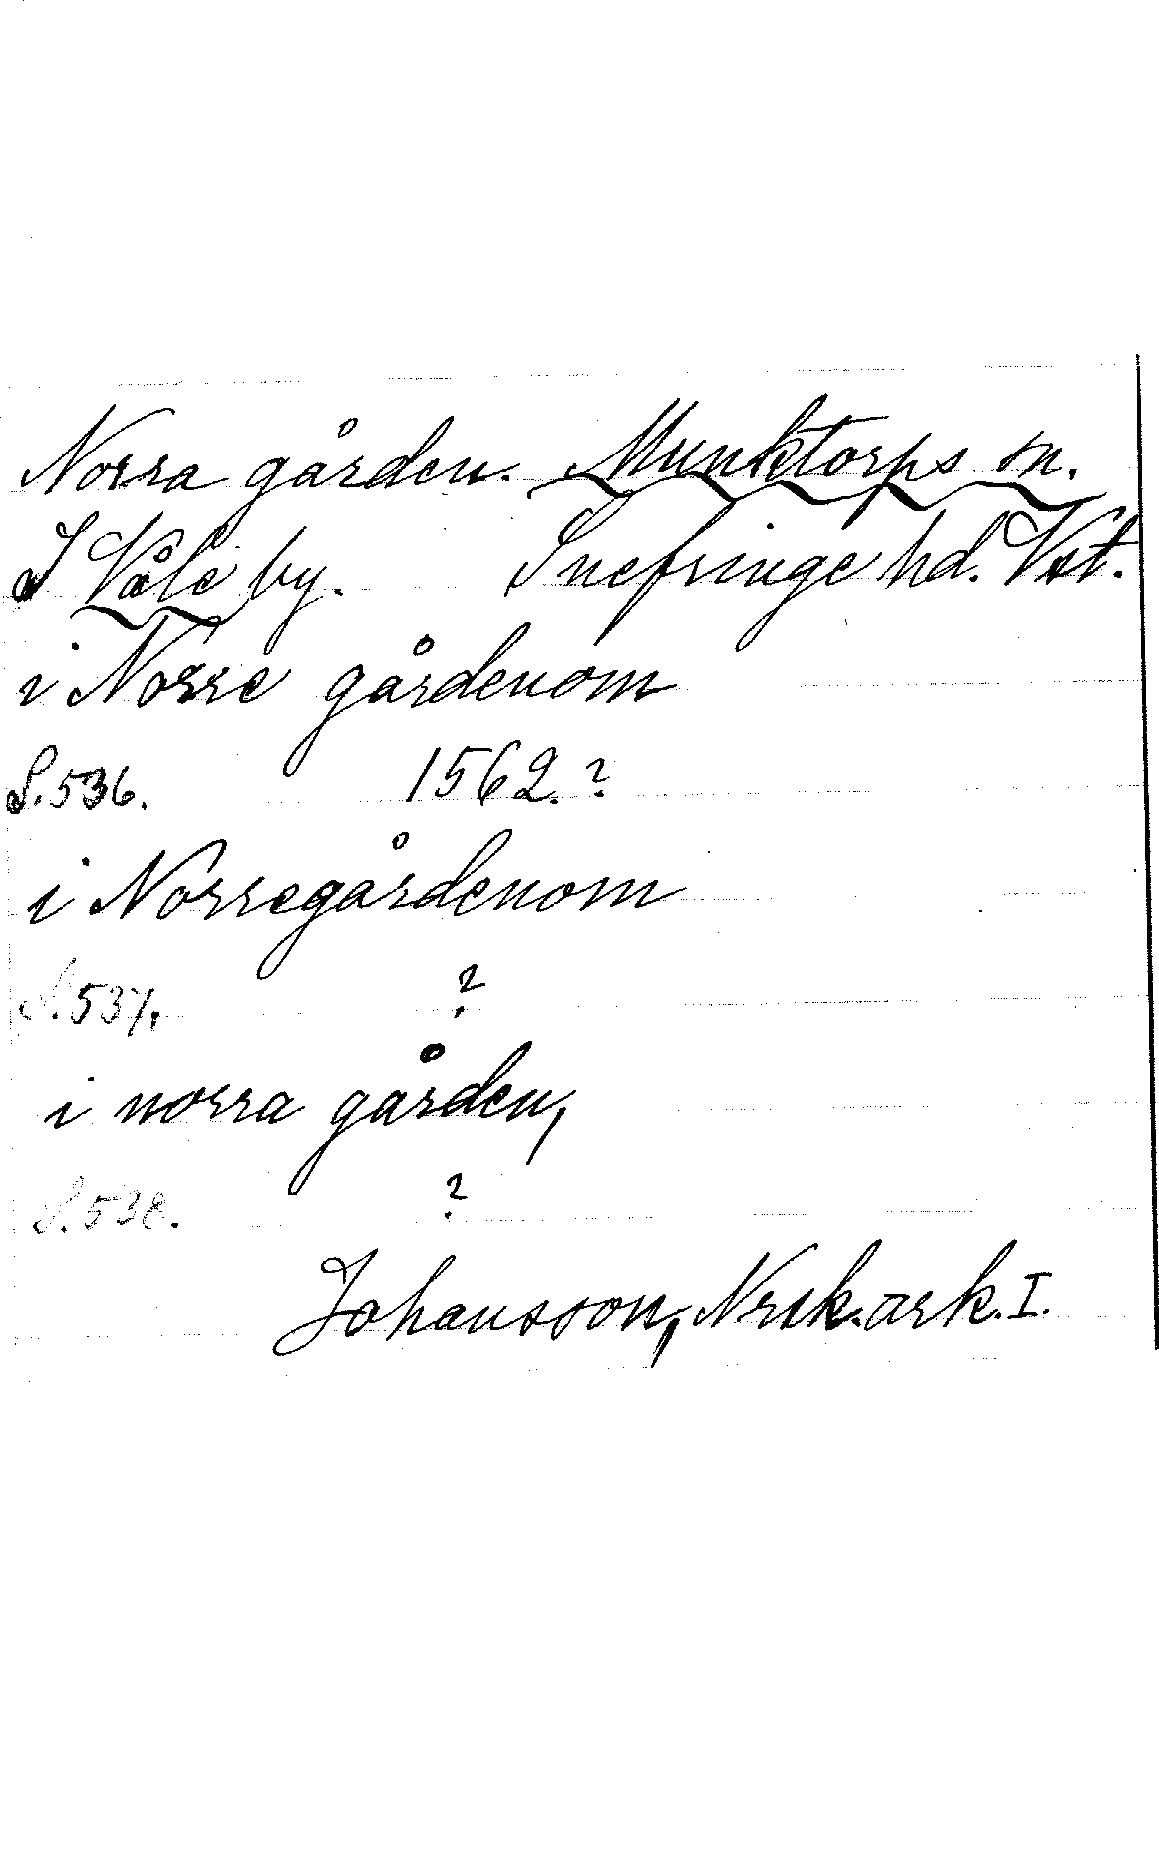 Norra gården. Munktorps sn.
I Våle by. Snefringe hd. Vst.
i Norre gårdenom
S. 536. 1562. ?
i Norregårdenom
S. 537. ?
i norra gården,
S. 538. ?
Johansson, Nrsk. ark. I.